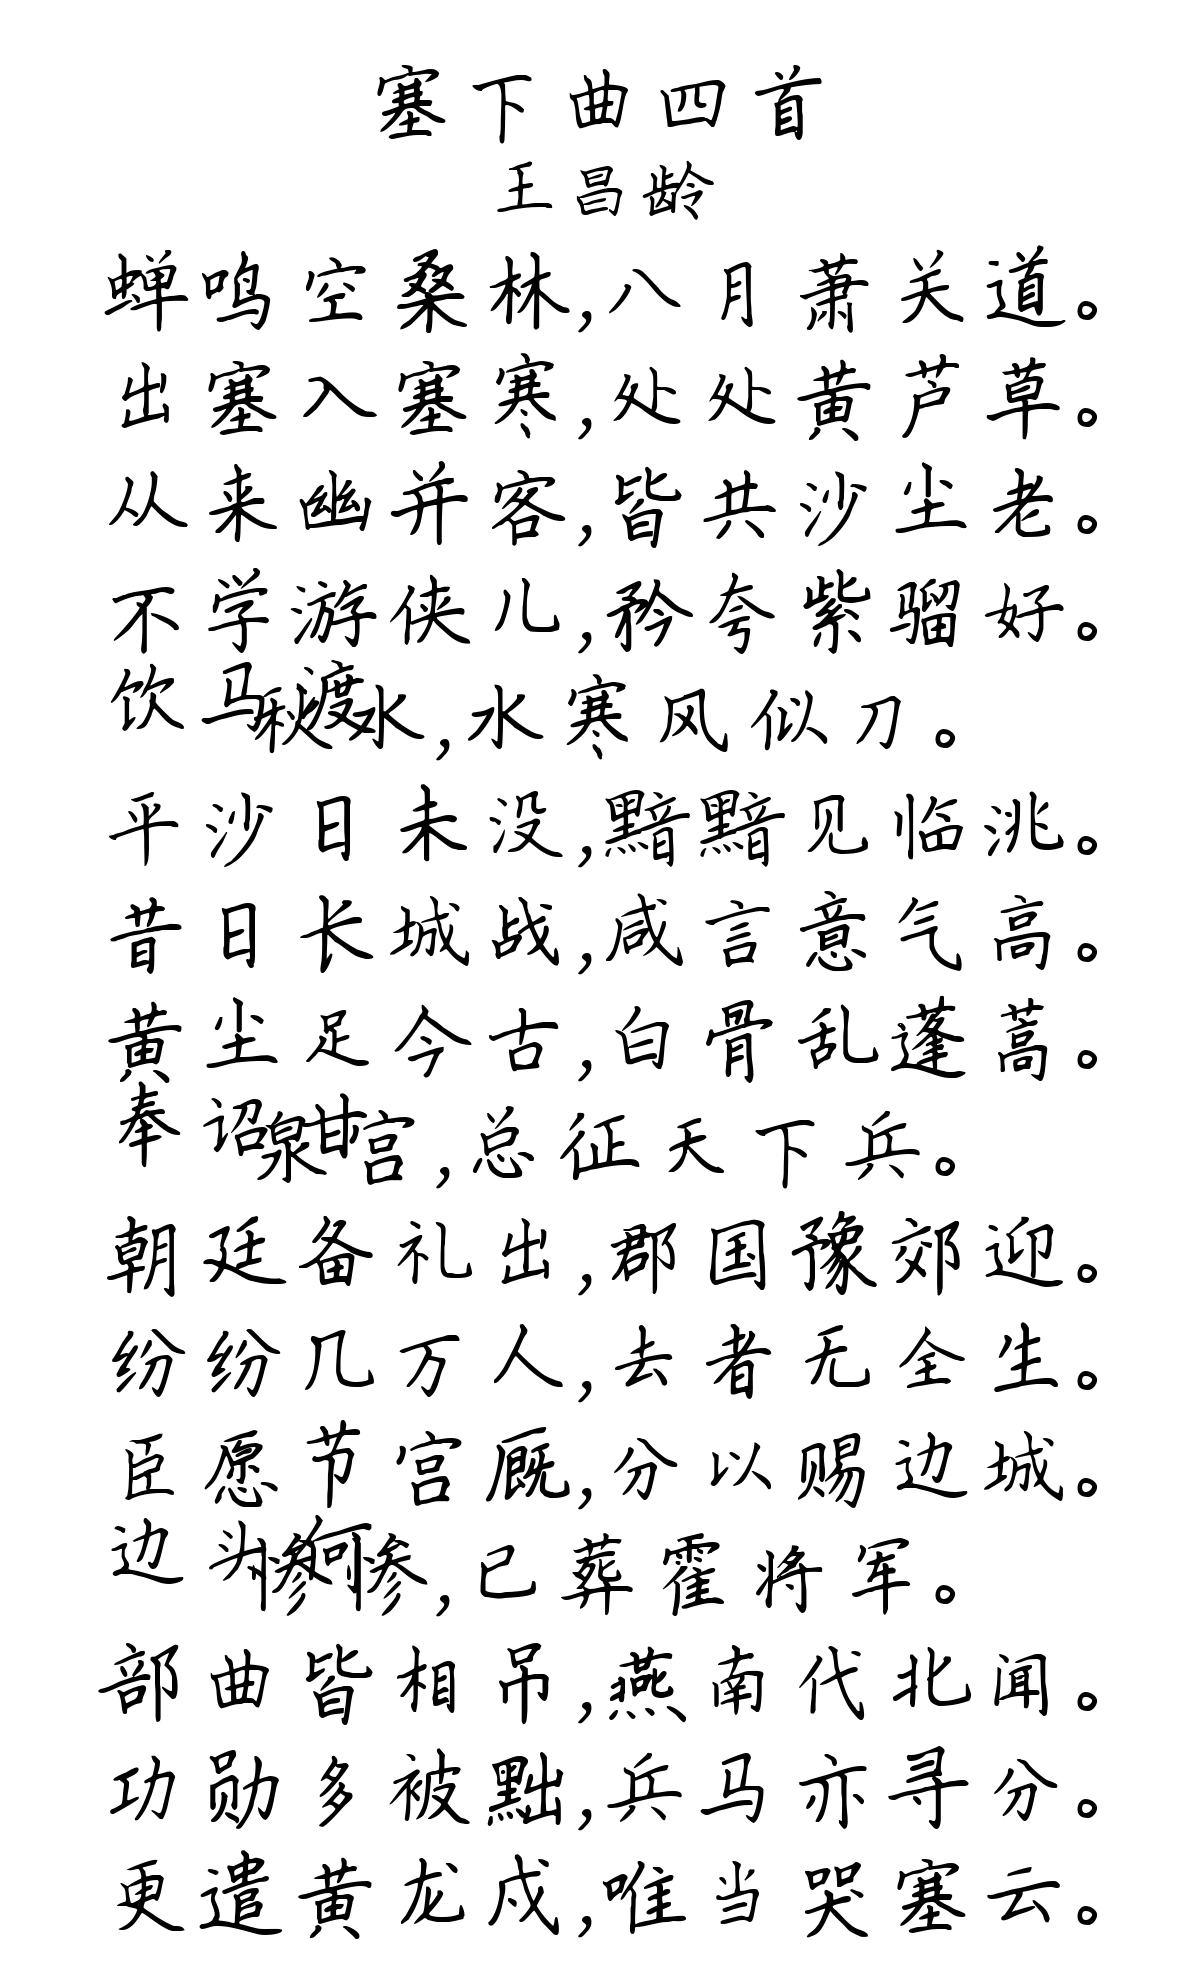 塞下曲四首
王昌龄
蝉鸣空桑林,八月萧关道。
出塞入塞寒,处处黄芦草。
从来幽并客,皆共沙尘老。
不学游侠儿,矜夸紫骝好。
饮马渡秋水,水寒风似刀。
平沙日未没,黯黯见临洮。
昔日长城战,咸言意气高。
黄尘足今古,白骨乱蓬蒿。
奉诏甘泉宫,总征天下兵。
朝廷备礼出,郡国豫郊迎。
纷纷几万人,去者无全生。
臣愿节宫厩,分以赐边城。
边头何惨惨,已葬霍将军。
部曲皆相吊,燕南代北闻。
功勋多被黜,兵马亦寻分。
更遣黄龙戍,唯当哭塞云。